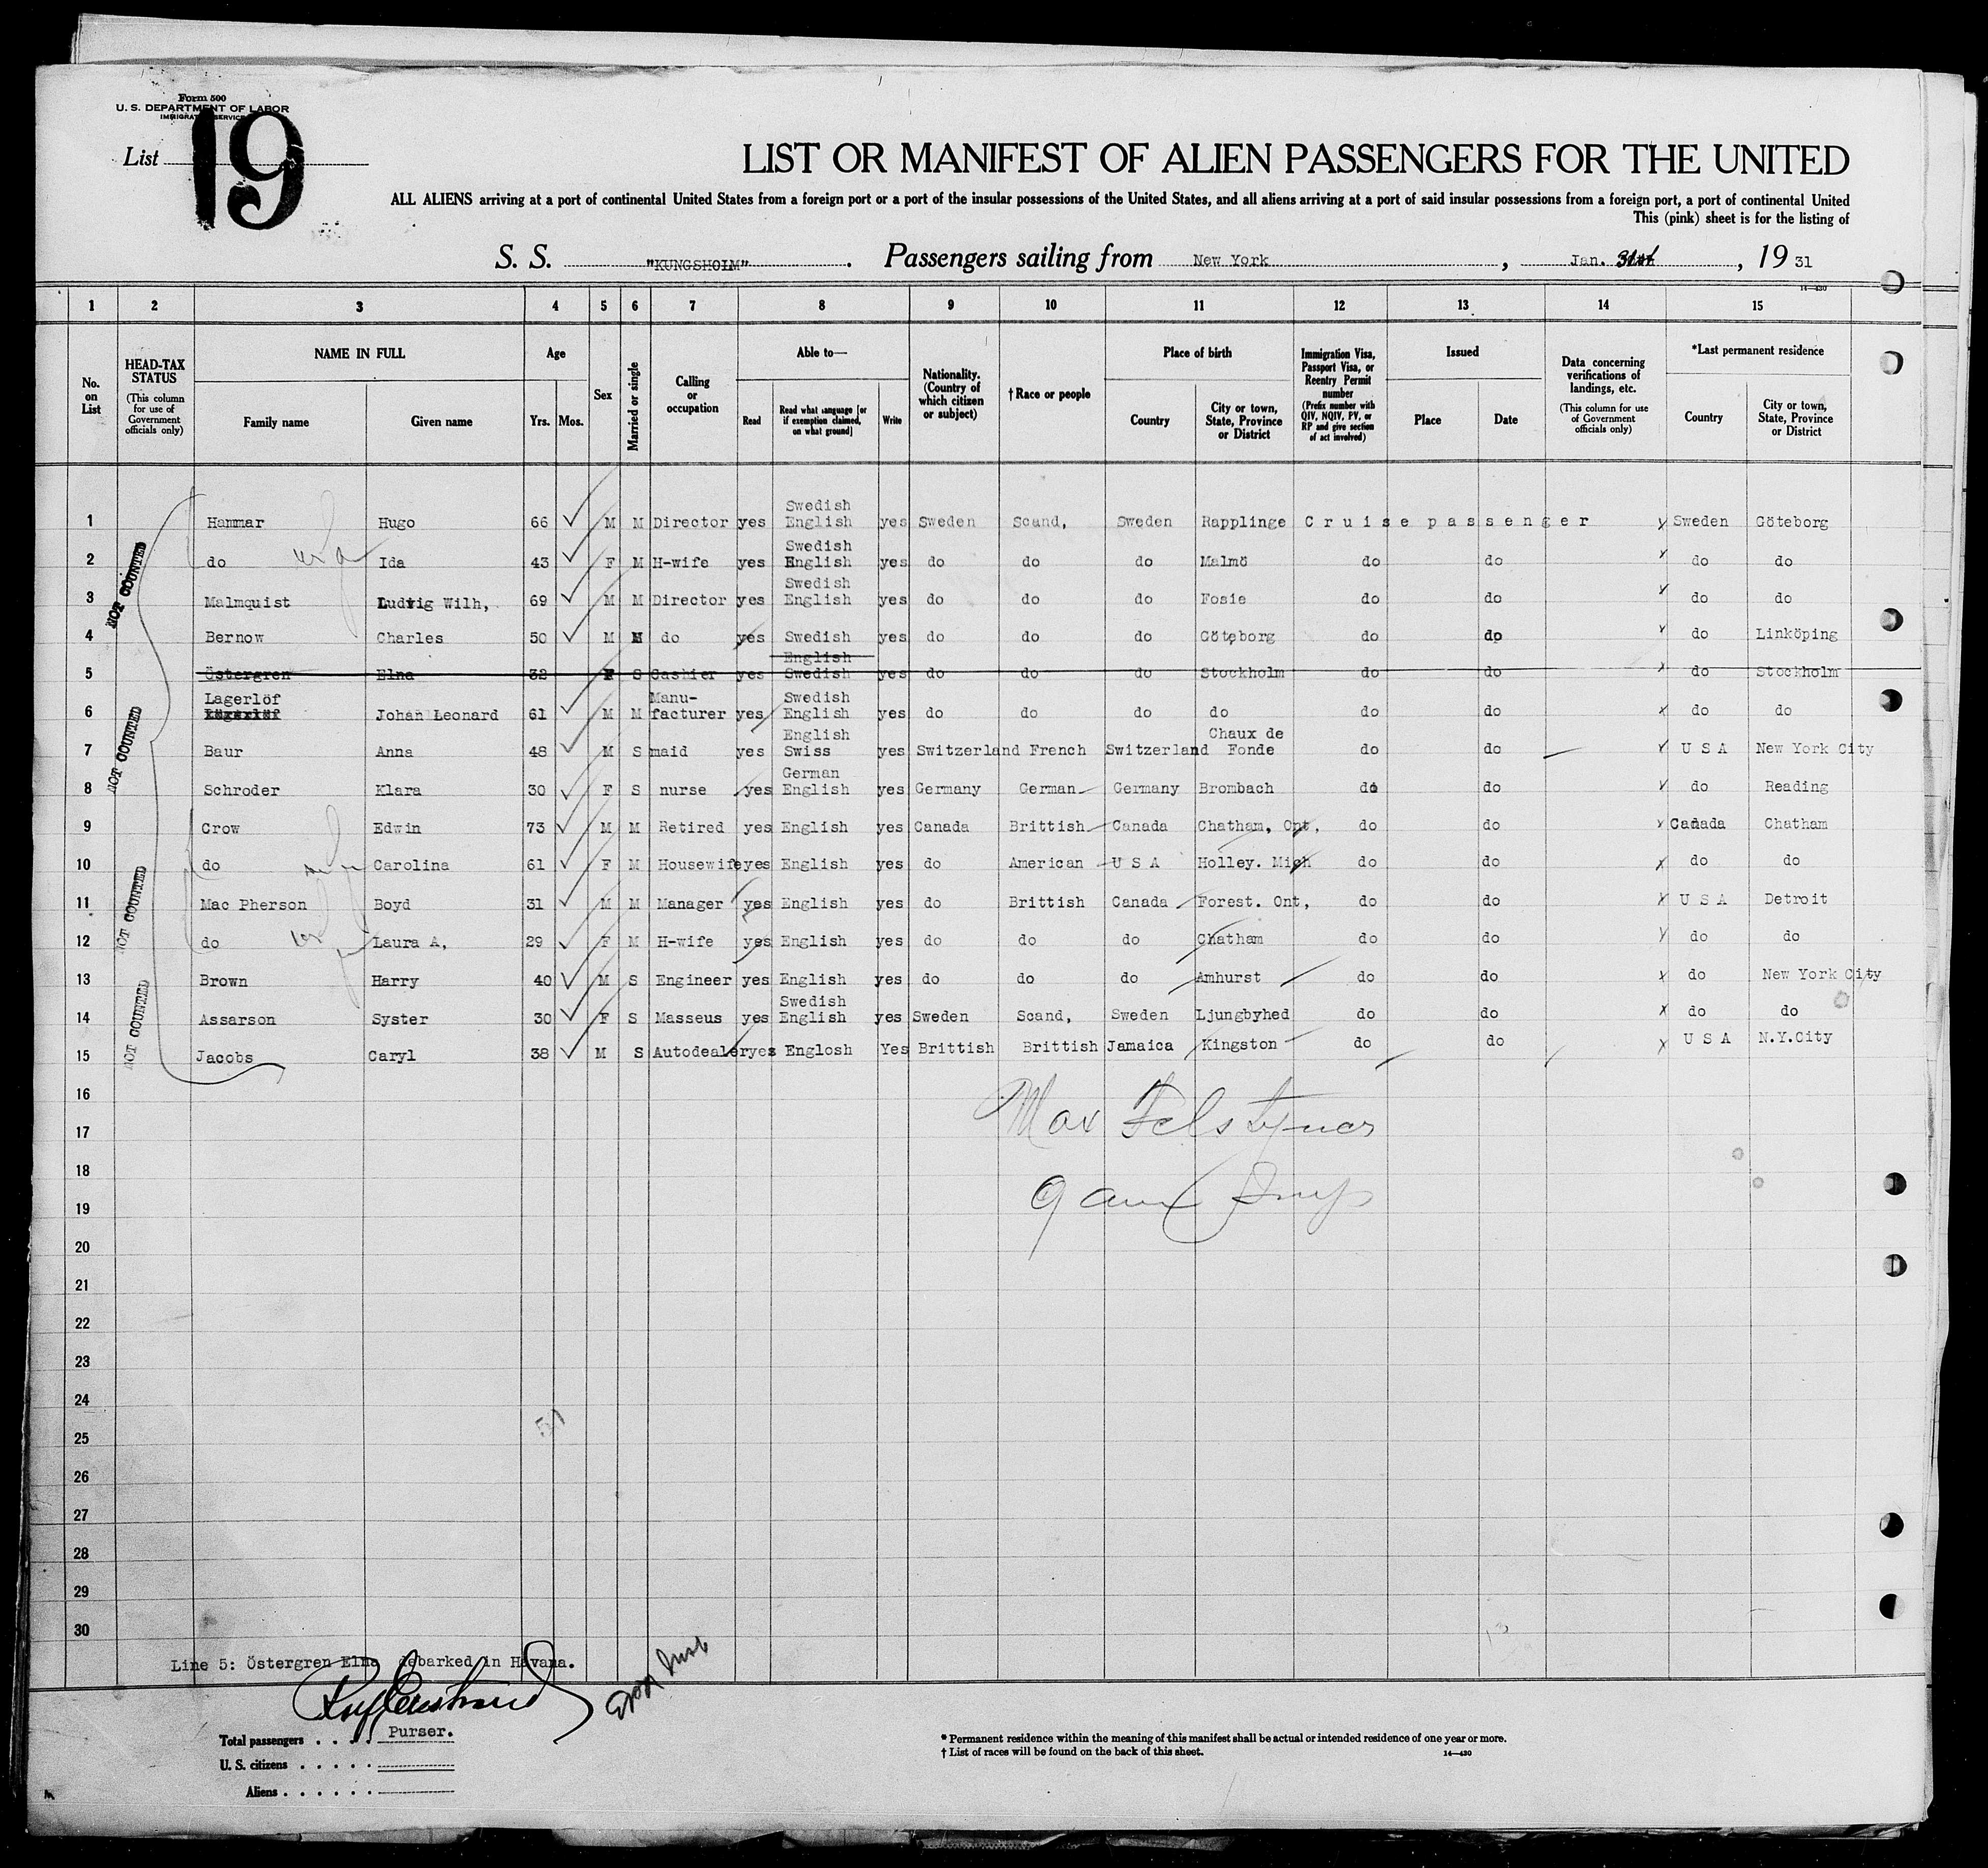 Form 500
U. S. DEPARTMENT OF LABOR
IMMIGRATION SERVICE
List 19
LIST OR MANIFEST OF ALIEN PASSENGERS FOR THE UNITED
ALL ALIENS arriving at a port of continental United States from a foreign port or a port of the insular possessions of the United States, and all aliens arriving at a port of said insular possessions from a foreign port, a port of continental United
This (pink) sheet is for the listing of
S. S. "KUNGSHOLM". Passengers sailing from New York, Jan. 31st, 19 31
14—430
1 2 3 4 5 6 7 8 9 10 11 12 13 14 15
No. on List
HEAD-TAX STATUS (This column for use of Government officials only)
NAME IN FULL
Family name Given name
Age
Yrs. Mos.
Sex
Married or single
Calling or occupation
Able to—
Read
Read what language [or if exemption claimed, on what ground]
Write
Nationality. (Country of which citizen or subject)
† Race or people
Place of birth
Country
City or town, State, Province or District
Immigration Visa, Passport Visa, or Reentry Permit number (Prefix number with QIV, NQIV, PV, or RP and give section of act involved)
Issued
Place Date
Data concerning verifications of landings, etc. (This column for use of Government officials only)
*Last permanent residence
Country
City or town, State, Province or District
1 Hammar Hugo 66 M M Director yes Swedish English yes Sweden Scand, Sweden Rapplinge Cruise passenger Sweden Göteborg
2 do Ida 43 F M H-wife yes Swedish English yes do do do Malmö do do do do
3 Malmquist Ludvig Wilh, 69 M M Director yes Swedish English yes do do do Fosie do do do do
4 Bernow Charles 50 M M do yes Swedish English yes do do do Göteborg do do do Linköping
5 Östergren Elna 32 F S Cashier yes Swedish yes do do do Stockholm do do do Stockholm
6 Lagerlöf Johan Leonard 61 M M Manu-facturer yes Swedish English yes do do do do do do do do
7 Baur Anna 48 M S maid yes English Swiss yes Switzerland French Switzerland Chaux de Fonde do do U S A New York City
8 Schroder Klara 30 F S nurse yes German English yes Germany German Germany Brombach do do do Reading
9 Crow Edwin 73 M M Retired yes English yes Canada Brittish Canada Chatham, Ont, do do Canada Chatham
10 do Carolina 61 F M Housewife yes English yes do American U S A Holley. Mich do do do do
11 Mac Pherson Boyd 31 M M Manager yes English yes do Brittish Canada Forest. Ont, do do U S A Detroit
12 do Laura A, 29 F M H-wife yes English yes do do do Chatham do do do do
13 Brown Harry 40 M S Engineer yes English yes do do do Amhurst do do do New York City
14 Assarson Syster 30 F S Masseus yes Swedish English yes Sweden Scand, Sweden Ljungbyhed do do do do
15 Jacobs Caryl 38 M S Autodealer yes Englosh Yes Brittish Brittish Jamaica Kingston do do U S A N.Y.City
NOT COUNTED
NOT COUNTED
NOT COUNTED
NOT COUNTED
16
17
18
19
20
21
22
23
24
25
26
27
28
29
30
Line 5: Östergren Elna debarked in Havana.
Purser.
Total passengers
U. S. citizens
Aliens
* Permanent residence within the meaning of this manifest shall be actual or intended residence of one year or more.
† List of races will be found on the back of this sheet.
14—430